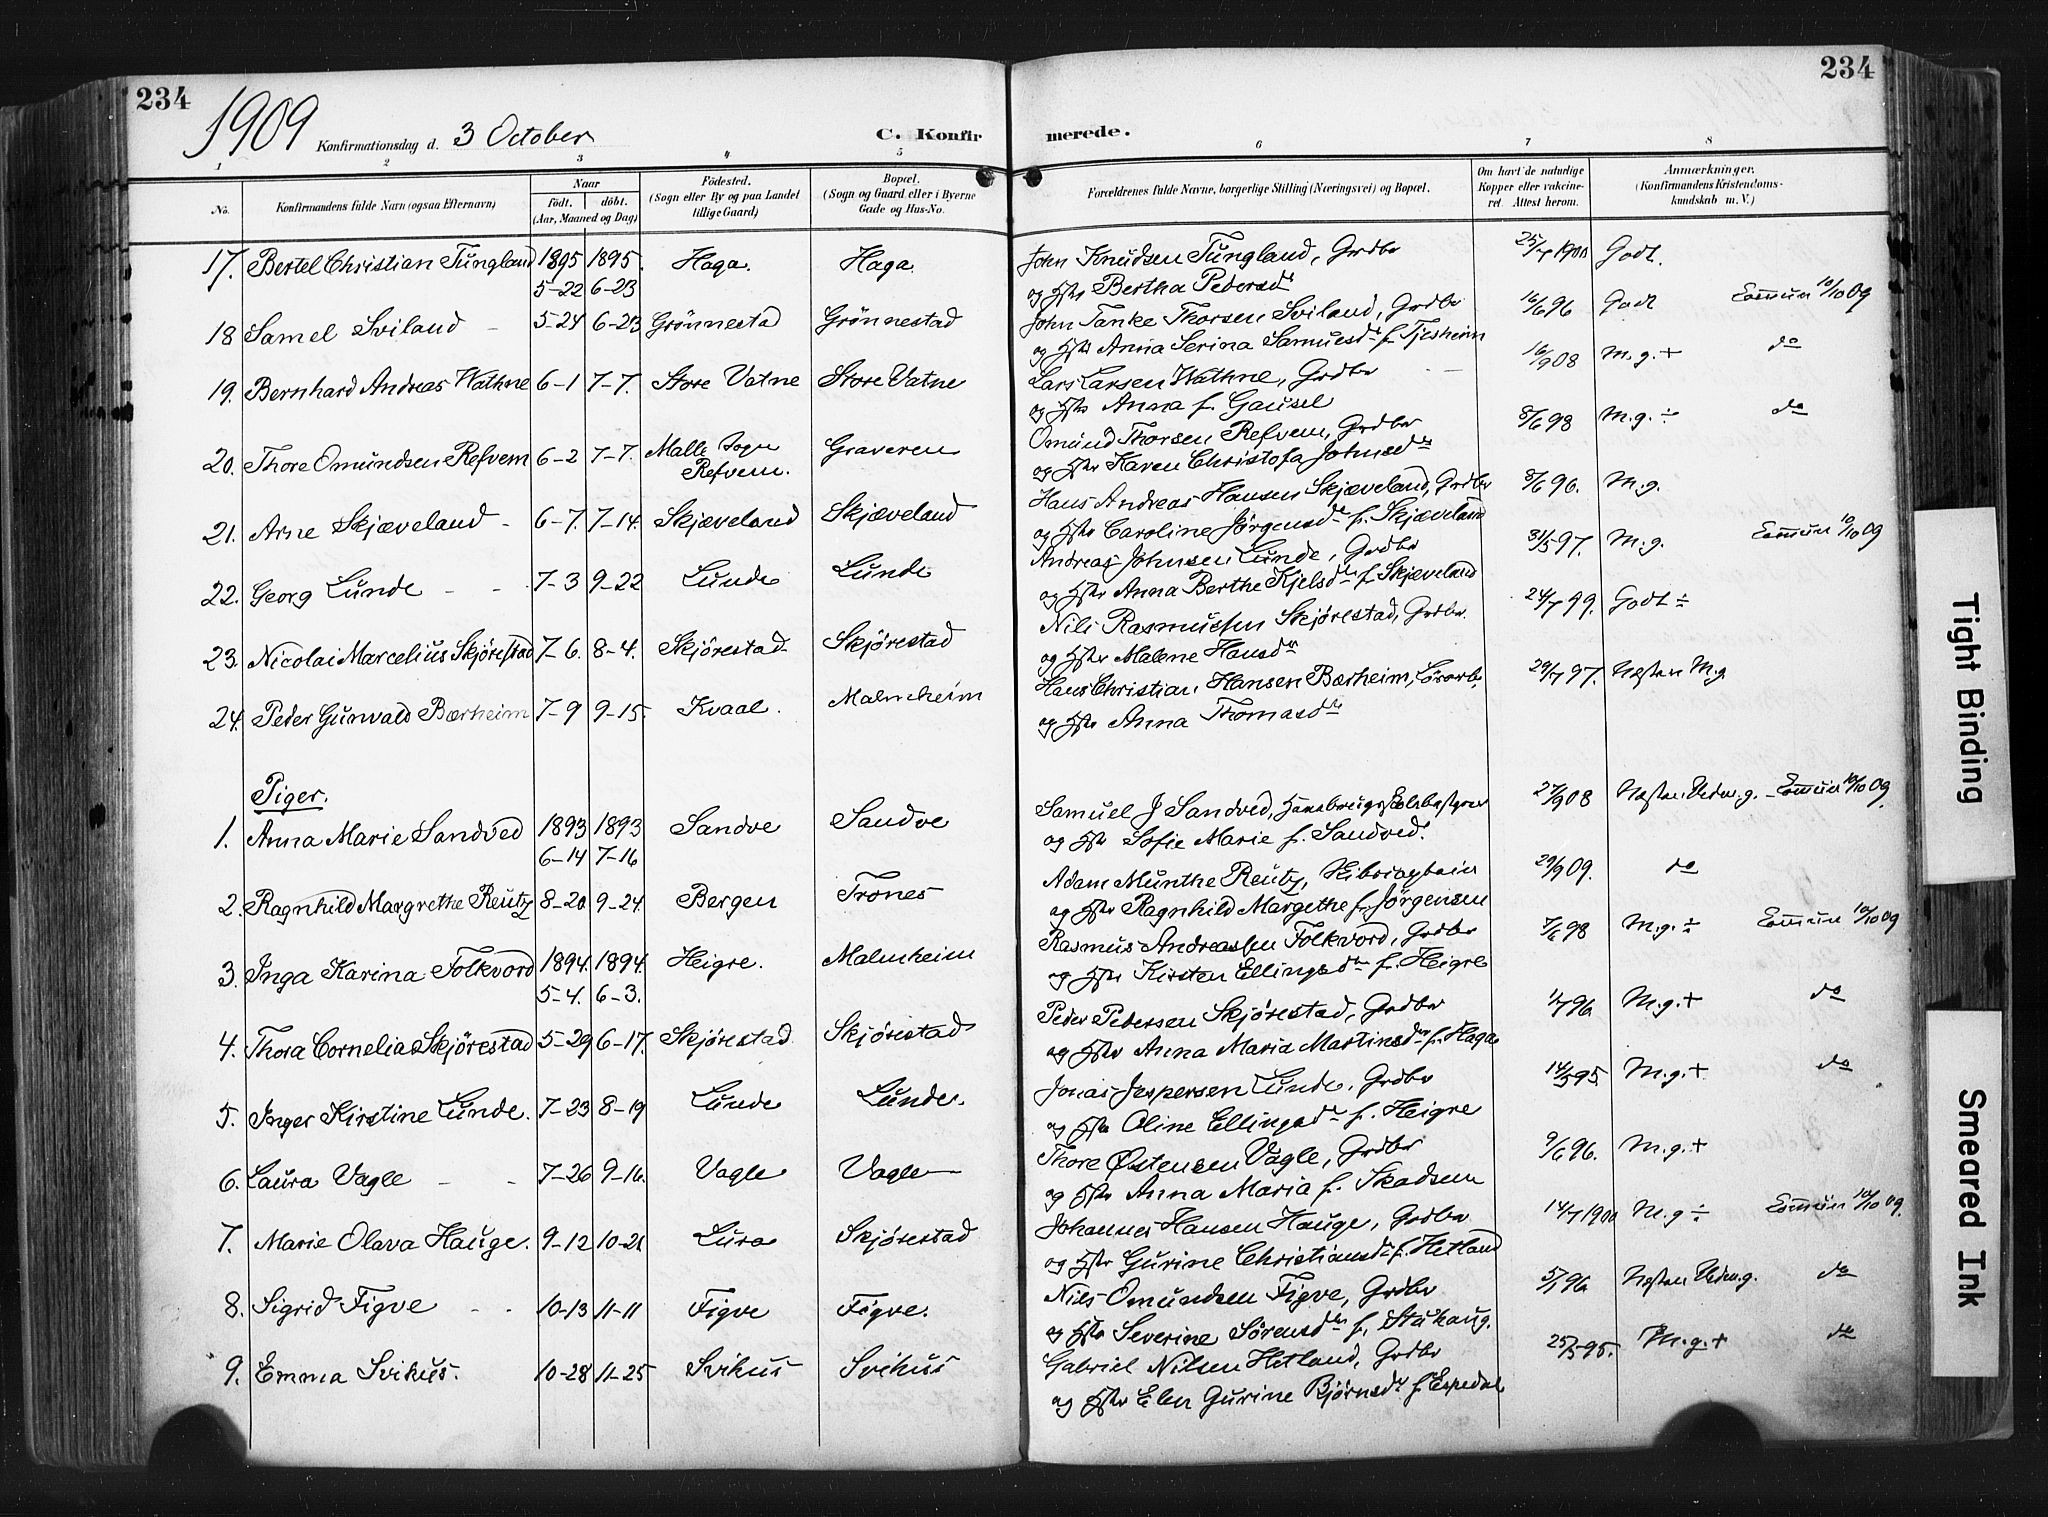 234
1909
Konfirmationsdag d. 3 October
C. Konfir
merede.
234
1 2 3 4 5 6 7 8
No.
Konfirmandens fulde Navn (ogsaa Efternavn)
Naar
født. døbt.
(Aar, Maaned og Dag)
Fødested.
(Sogn eller By og paa Landet
tillige Gaard)
Bopæl.
(Sogn og Gaard eller i Byerne
Gade og Hus-No.
Forældrenes fulde Navne, borgerlige Stilling (Næringsvei) og Bopæl.
Om havt de naturlige
Kopper eller vakcine-
ret. Attest herom.
Anmærkninger.
(Konfirmandens Kristendoms-
kundskab m. V.)
17. Bertel Christian Tungland 1895 1895. Haga. Haga John Knudsen Tungland, Grdbr 25/7 1900 Godt.
5-22 6-23 og Hstr Bertha Pedersdr
18 Samel Sviland - 5-24 6-23 Grönnestad Grönnestad John Tanke Thorsen Sviland, Grdbr 16/6 96 Godt 10/10 09
og Hstr Anna Serina Samuelsdr f. Tjesheim
19. Bernhard Andreas Wathne 6-1 7-7. Store Vatne Store Vatne Lars Larsen Wathne, Grdbr 16/9 08 M.g.+ do
og Hstr Anna f. Gausel
20. Thore Omundsen Refvem 6-2 7-7. Malle Sogn Refvem. Graveren Omund Thorsen Refvem, Grdbr 8/6 98 M.g.÷ do
og Hstr Karen Christofa Johnsdr
21. Arne Skjæveland - 6-7. 7-14. Skjæveland Skjæveland Hans Andreas Hansen Skjæveland, Grdbr 8/6 96. M.g.
og Hstr Caroline Jørgensdr f. Skjæveland
22. Georg Lunde - - 7-3 9-22 Lunde Lunde Andreas Johnsen Lunde, Grdbr 31/5 97. M.g. 10/10 09
og Hstr Anna Berthe Kjelsdr f. Skjæveland
23. Nicolai Marcelius Skjørestad 7-6. 8-4. Skjørestad Skjørestad Nils Rasmussen Skjørestad, Grdbr. 24/7 99. Godt ÷
og Hstr Malene Hansdr
24. Peder Gunvald Bærheim 7-9 9-15. Kvaal. Malmeheim Hans Christian Hansen Bærheim, 29/7 97. Næsten M.g
og Hstr Anna Thomasdr
Piger.
1. Anna Marie Sandved 1893 1893 Sandve Sandve Samuel J Sandved, 27/9 08 10/10 09
6-14 7-16 og Hstr Sofie Marie f. Sandved.
2. Ragnhild Margrethe Reutz 8-20 9-24. Bergen Trones Adam Munthe Reutz, 29/9 09. do
og Hstr Ragnhild Margethe f. Jørgensen
3. Inga Karina Folkvord 1894. 1894. Heigre. Malmheim Rasmus Andreassen Folkvord, Grdbr 7/6 98 M.g.÷ 10/10 09
5-4. 6-3. og Hstr Kirsten Ellingsdr f. Heigre
4. Thora Cornelia Skjørestad 5-29 6-17. Skjørestad Skjørestad Peder Pedersen Skjørestad, Grdbr 1/7 96. M.g.+ do
og Hstr Anna Maria Martinsdr f. Haga
5. Inger Kirstine Lunde. 7-23 8-19 Lunde Lunde. Jonas Jespersen Lunde, Grdbr 14/5 95 M.g.+ do
og Hstr Oline Ellingsdr f. Heigre
6. Laura Vagle - - 7-26 9-16. Vagle Vagle Thore Østensen Vagle, Grdbr 9/6 96. M.g.+
og Hstr Anna Maria f. Skadsem
7. Marie Olava Hauge. 9-12 10-21 Lura Skjørestad Johannes Hansen Hauge, Grdbr 14/7 1900 M.g ÷ 10/10 09.
og Hstr Gurine Christiansdr f. Hetland
8. Sigrid Figve - - 10-13 11-11 Figve Figve. Niels Omundsen Figve, Grdbr 5/7 96. do
og Hstr Severine Sørensdr f. Stuhaug.
9. Emma Svihus. 10-28 11-25 Svihus Svihus Gabriel Nilsen Hetland, Grdbr 25/5 95. M.g.+ do
og Hstr Elen Gurine Bjørnsdr f. Espedal
Tight Binding
Smeared Ink